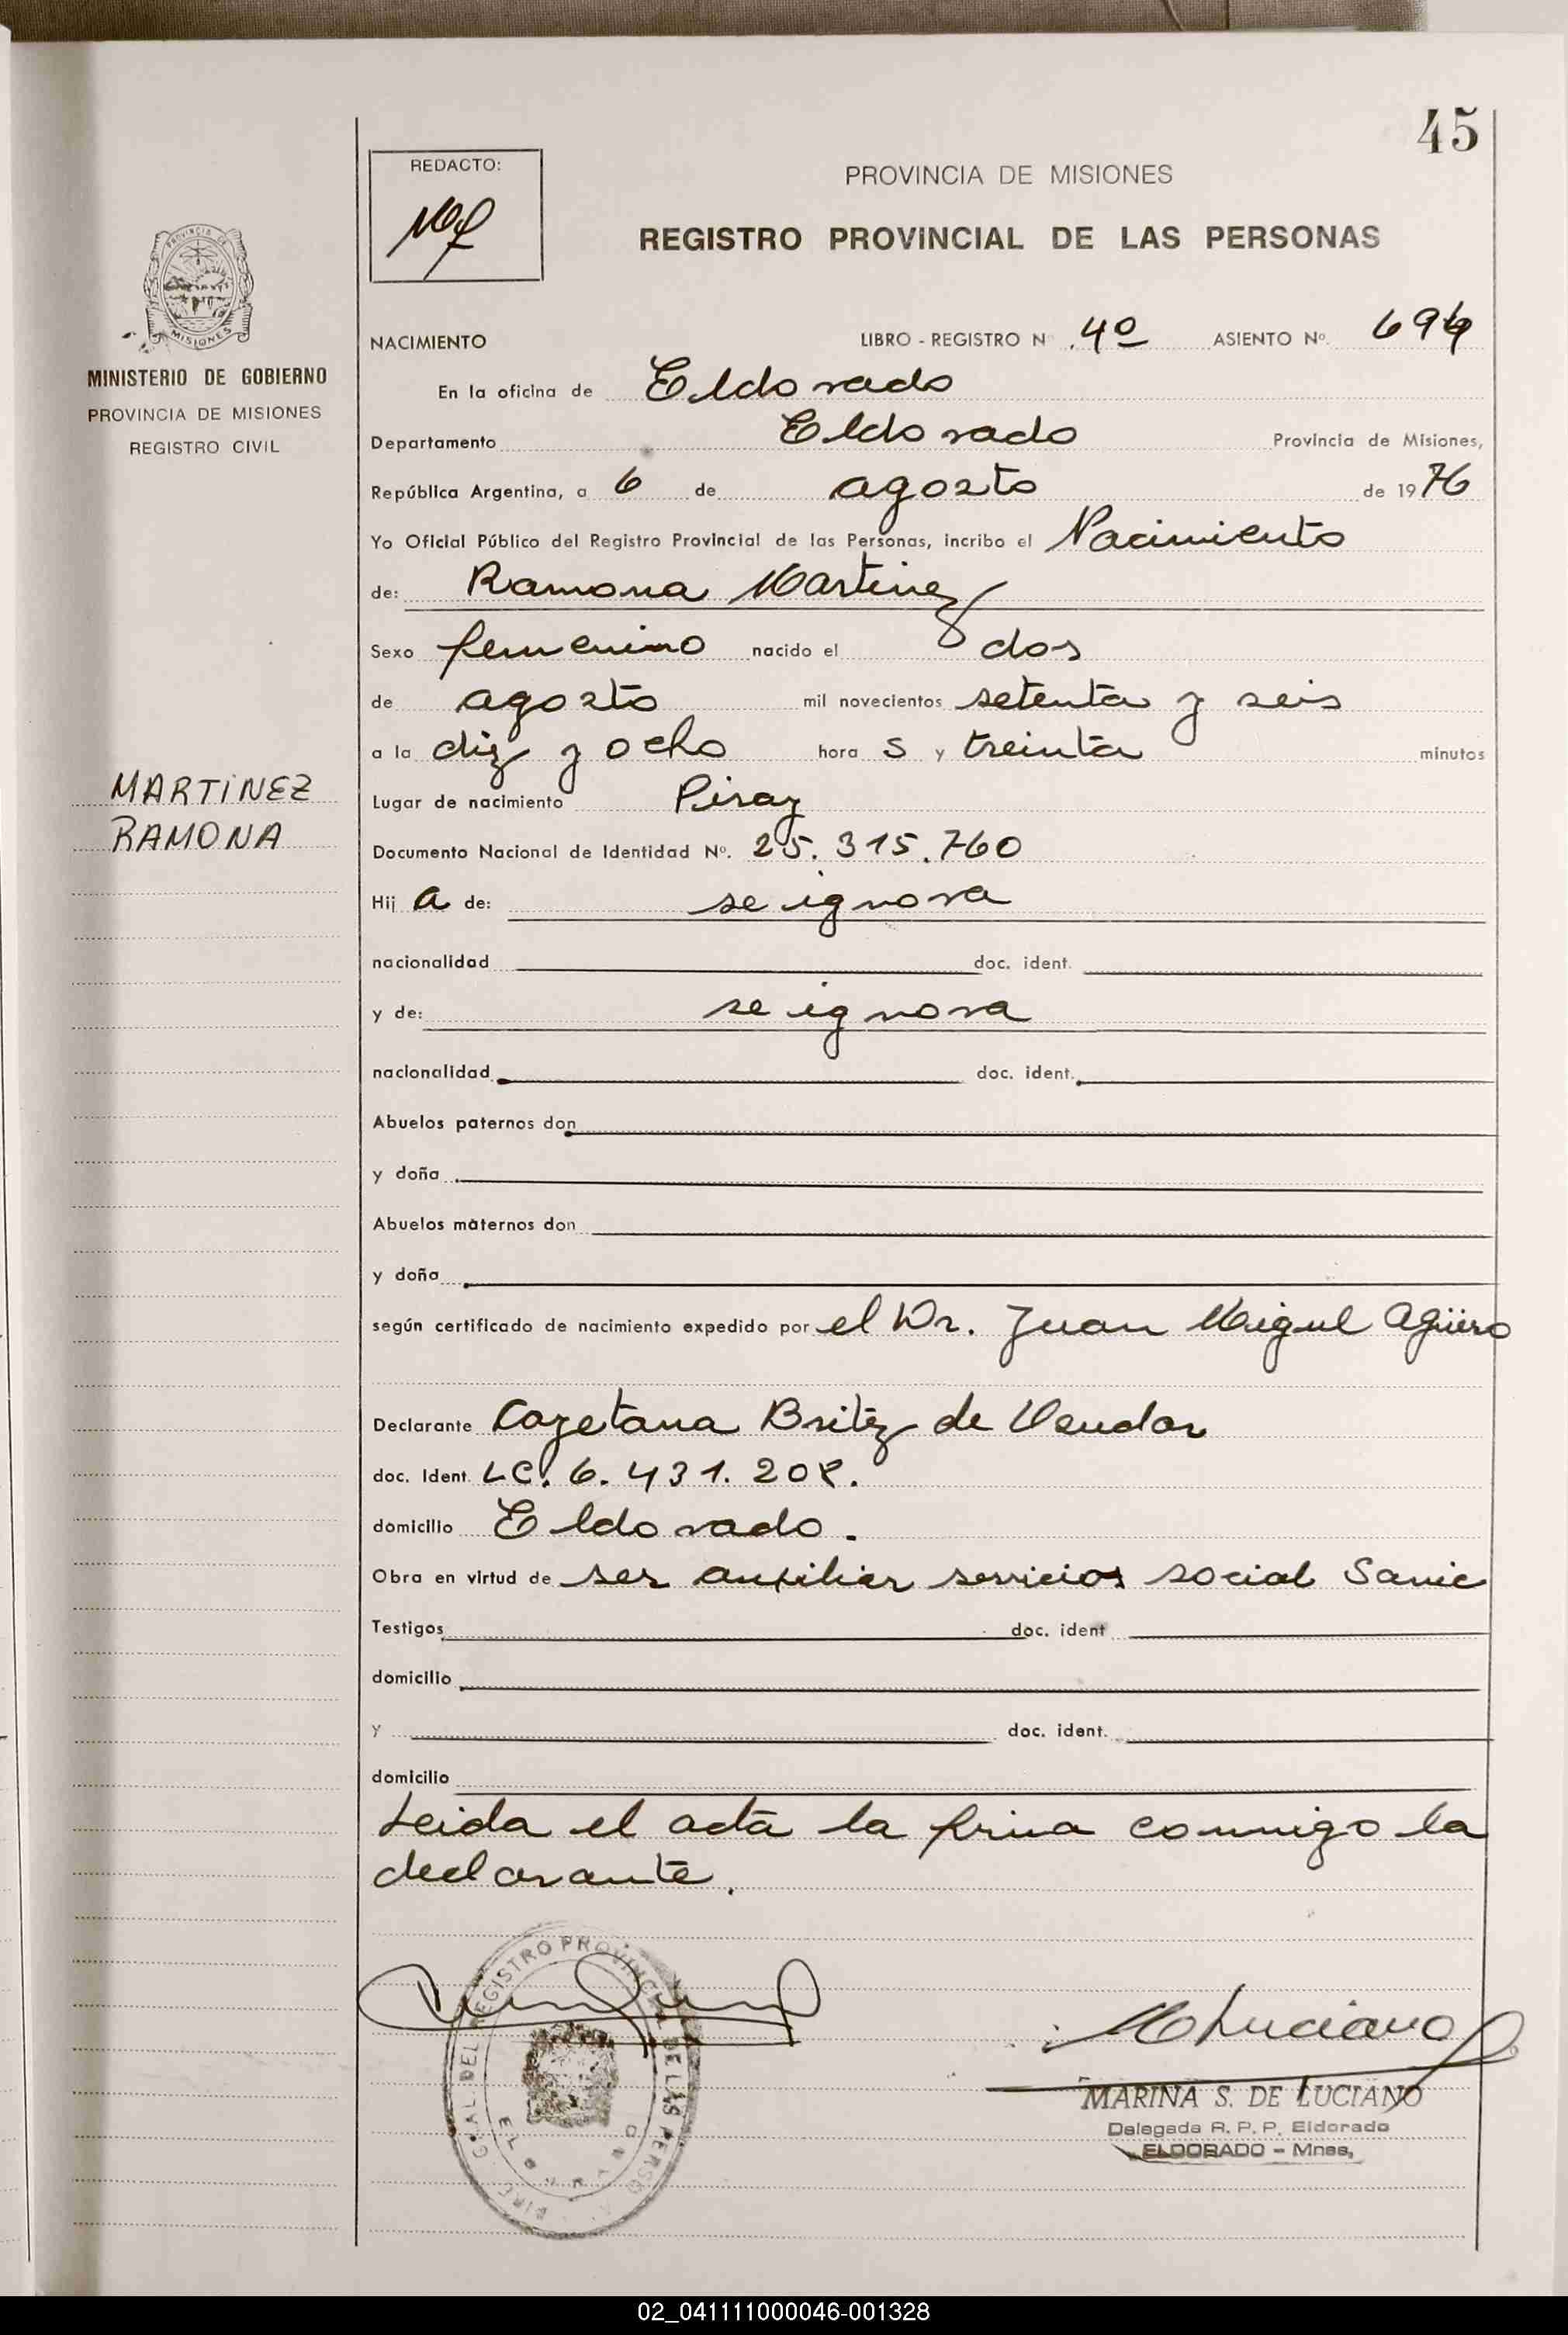 45
REDACTO:
PROVINCIA DE MISIONES
REGISTRO PROVINCIAL DE LAS PERSONAS
PROVINCIA DE
MISIONES
MINISTERIO DE GOBIERNO
PROVINCIA DE MISIONES
REGISTRO CIVIL
NACIMIENTO LIBRO - REGISTRO N 4º ASIENTO Nº
En la oficina de Eldorado
Departamento Eldorado Provincia de Misiones,
República Argentina, a 6 de agosto de 1976
Yo Oficial Público del Registro Provincial de las Personas, incribo el Nacimiento
de: Ramona Martinez
Sexo femenino nacido el dos
de agosto mil novecientos setenta y seis
a la diez y ocho hora s y treinta minutos
MARTINEZ
RAMONA
Lugar de nacimiento Piray
Documento Nacional de Identidad Nº. 25.315.760
Hij a de: se ignora
nacionalidad doc. ident.
y de: se ignora
nacionalidad doc. ident.
Abuelos paternos don
y doña
Abuelos maternos don
y doña
según certificado de nacimiento expedido por el Dr. Juan Miguel Agüero
Declarante Cayetana Britez de
doc. Ident. LC. 6.431.208.
domicilio Eldorado.
Obra en virtud de ser auxiliar servicios social
Testigos doc. ident
domicilio
y doc. ident.
domicilio
Leida el acta la firma conmigo la
declarante.
REGISTRO PROVINCIAL DE LAS PERSO
MLuciano
MARINA S. DE LUCIANO
Delegada R. P. P. Eldorado
ELDORADO - Mnes,
02_041111000046-001328